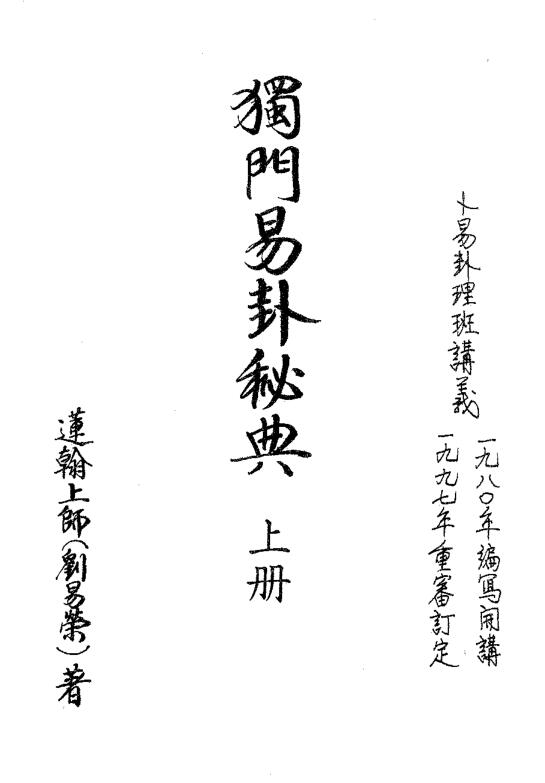 卜易卦理班講義
一九八〇年編寫開講
一九九七年重審訂定
獨門易卦秘典 上册
蓮翰上師(劉易榮)著